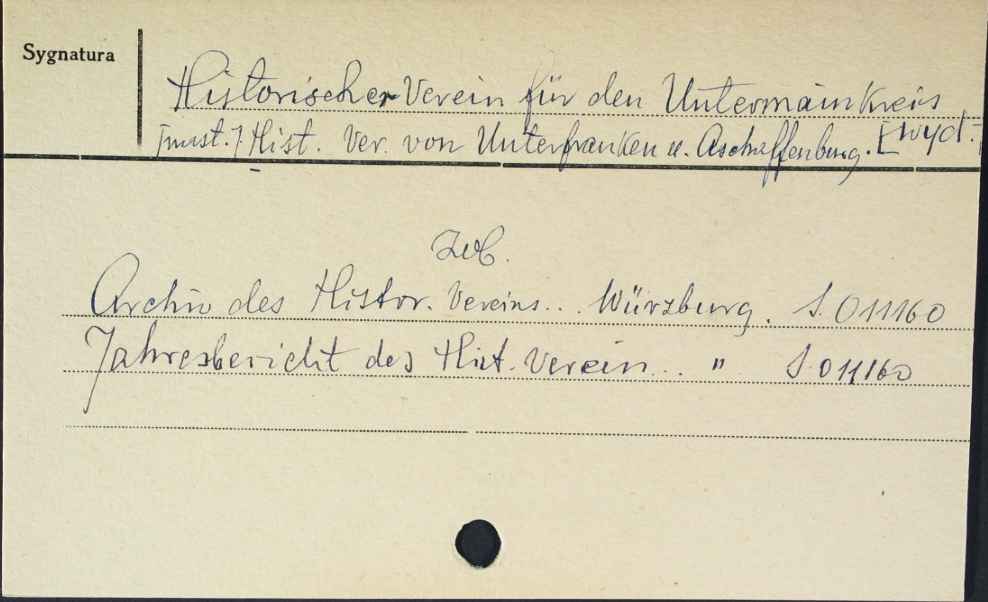 Sygnatura
Historischer Verein für den Untermainkreis
Hist. Ver. von Unterfranken u. Aschaffenburg. [wyd.]
Zob.
Archiv des Histor. Vereins... Würzburg. S. 011160
Jahresbericht des Hist. Verein... " S. 011160